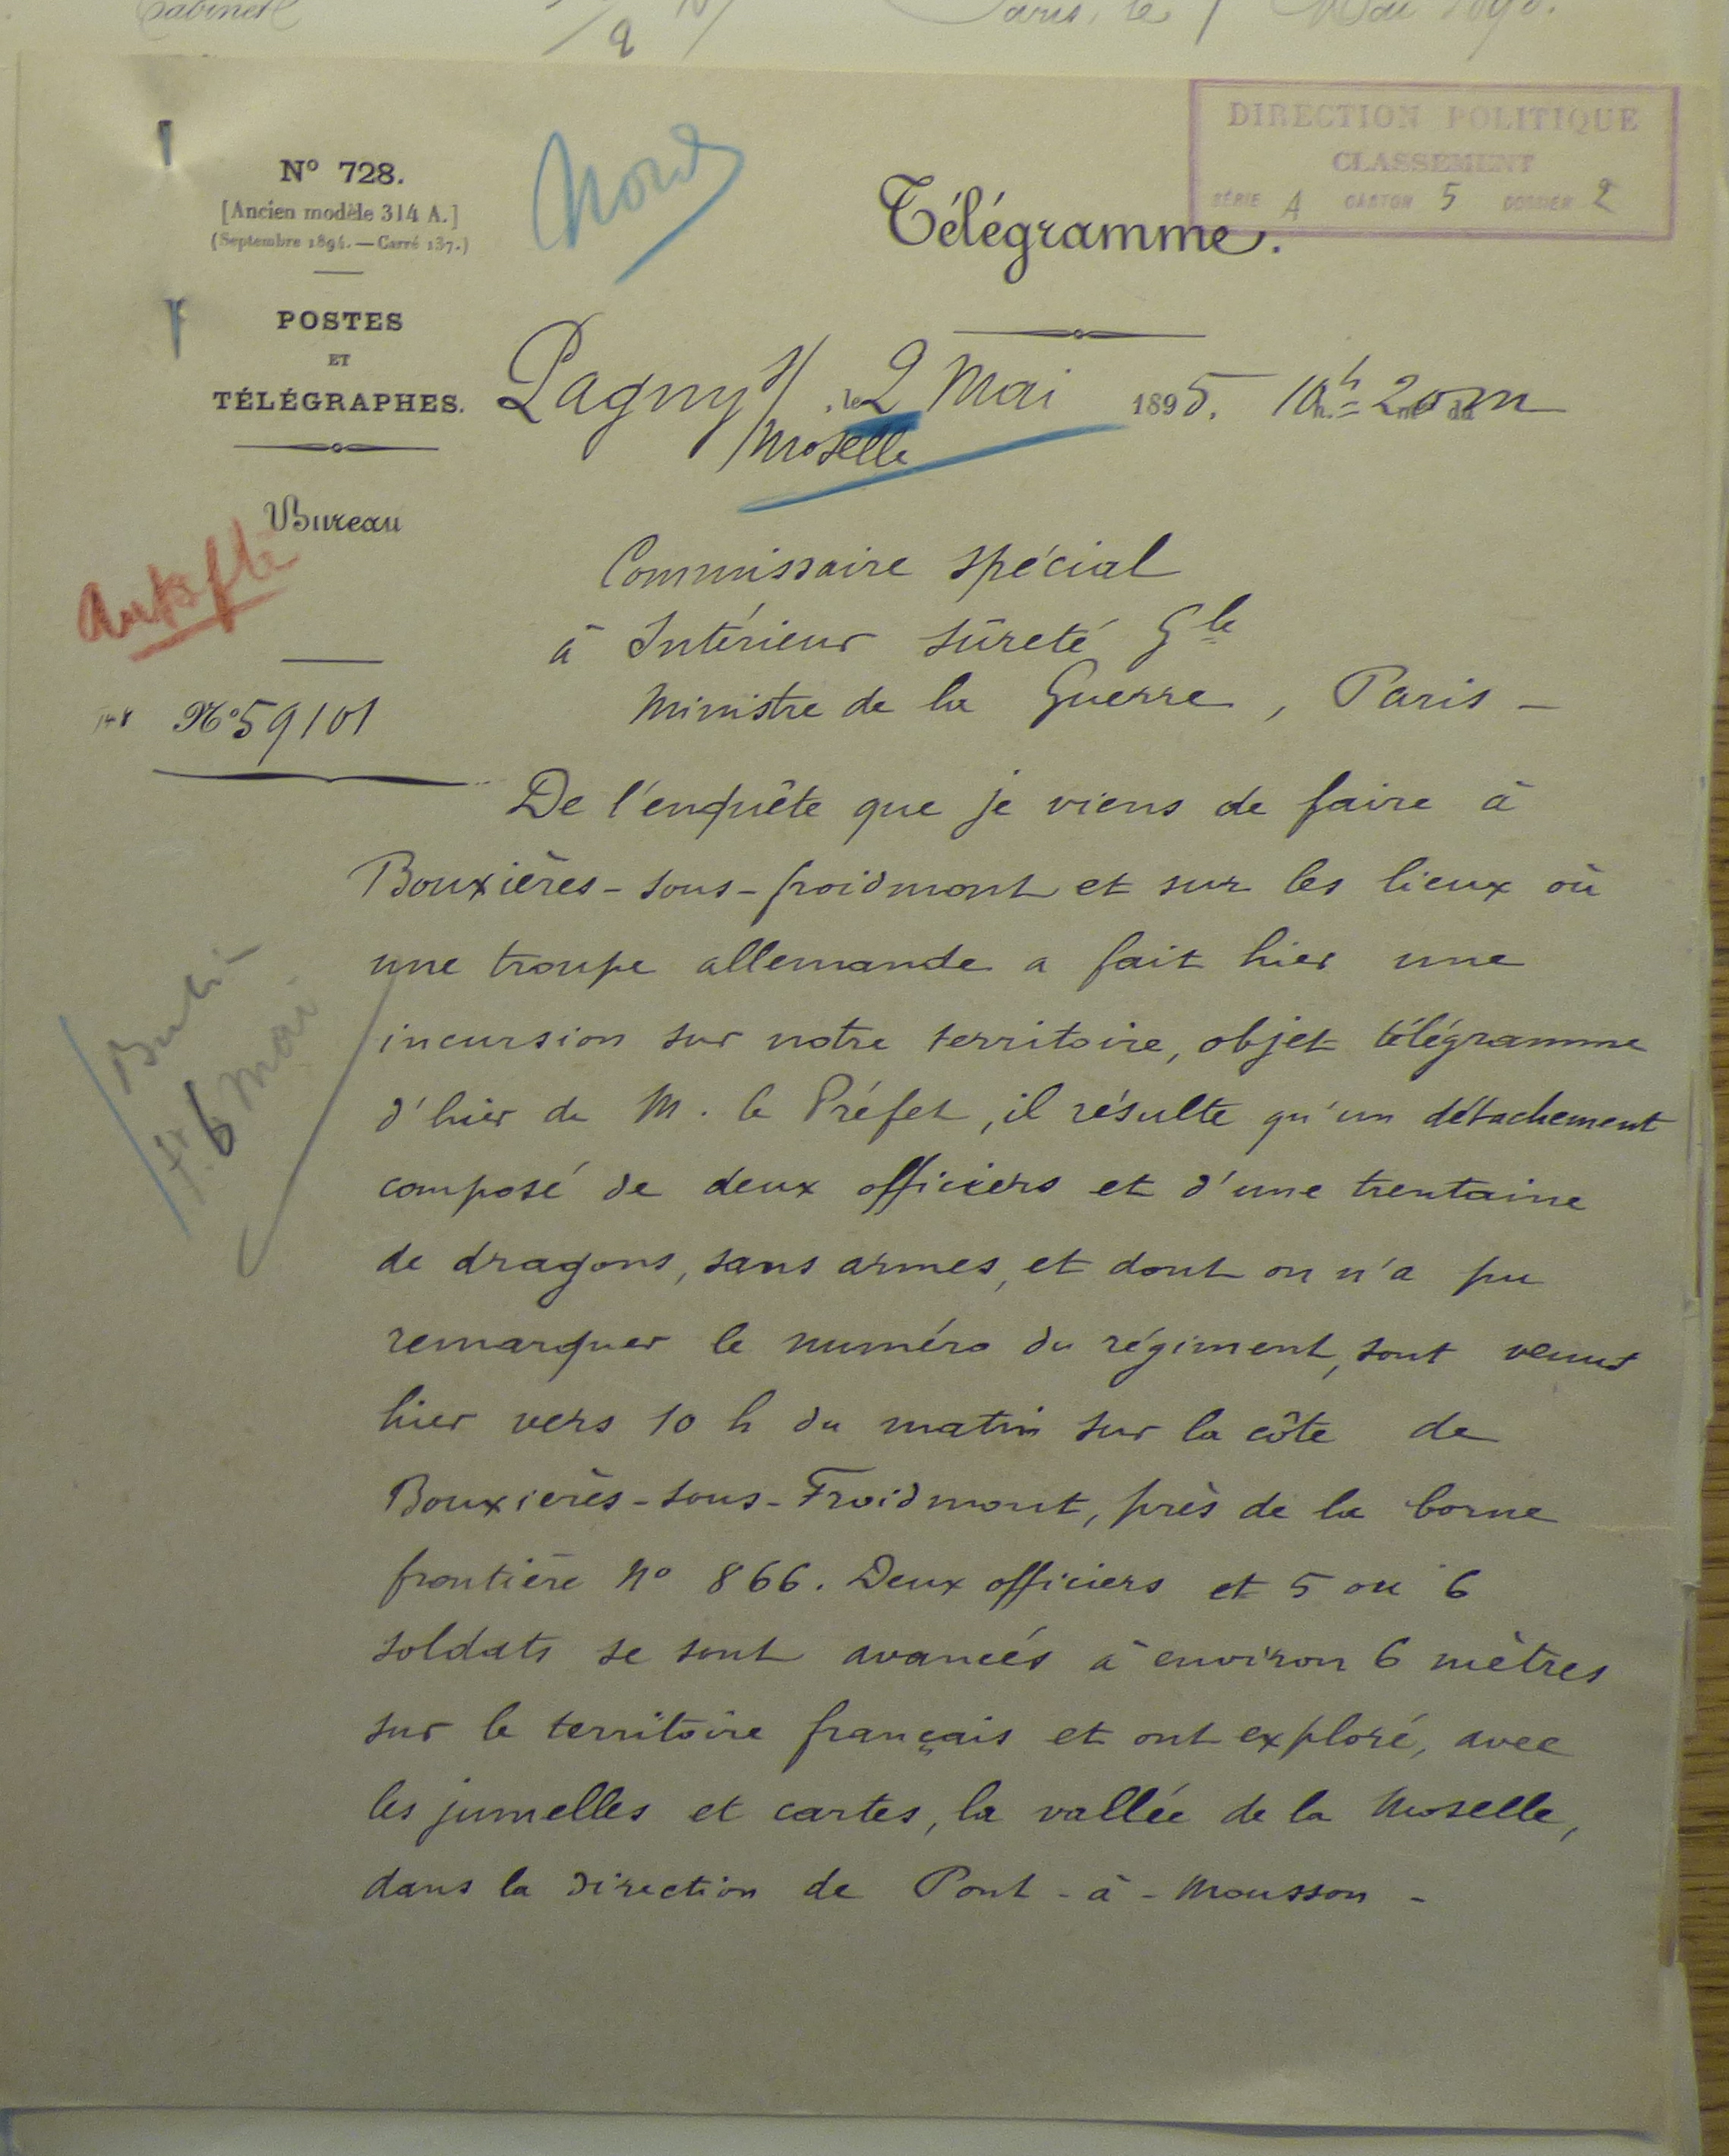 Cabinet
Paris, le Mai
DIRECTION POLITIQUE
CLASSEMENT
SÉRIE A CARTON 5 DOSSIER 2
N° 728.
[Ancien modèle 314 A.]
(Septembre 1894. — Carré 137.)
Nord
Télégramme.
POSTES
ET
TÉLÉGRAPHES.
Pagny s/ , le 2 Mai 1895. 10h = 20 m
Moselle
Bureau
Commissaire spécial
à Intérieur Sûreté Gle
Ministre de la Guerre, Paris -
N° 59101
De l'enquête que je viens de faire à
Bouxières-sous-froidmont et sur les lieux où
une troupe allemande a fait hier une
incursion sur notre territoire, objet télégramme
d'hier de M. le Préfet, il résulte qu'un détachement
composé de deux officiers et d'une trentaine
de dragons, sans armes, et dont on n'a pu
remarquer le numéro du régiment, sont venus
hier vers 10 h du matin sur la côte de
Bouxières-sous-Froidmont, près de la borne
frontière N° 866. Deux officiers et 5 ou 6
soldats se sont avancés à environ 6 mètres
sur le territoire français et ont exploré, avec
les jumelles et cartes, la vallée de la Moselle,
dans la direction de Pont-à-Mousson -
6 mai